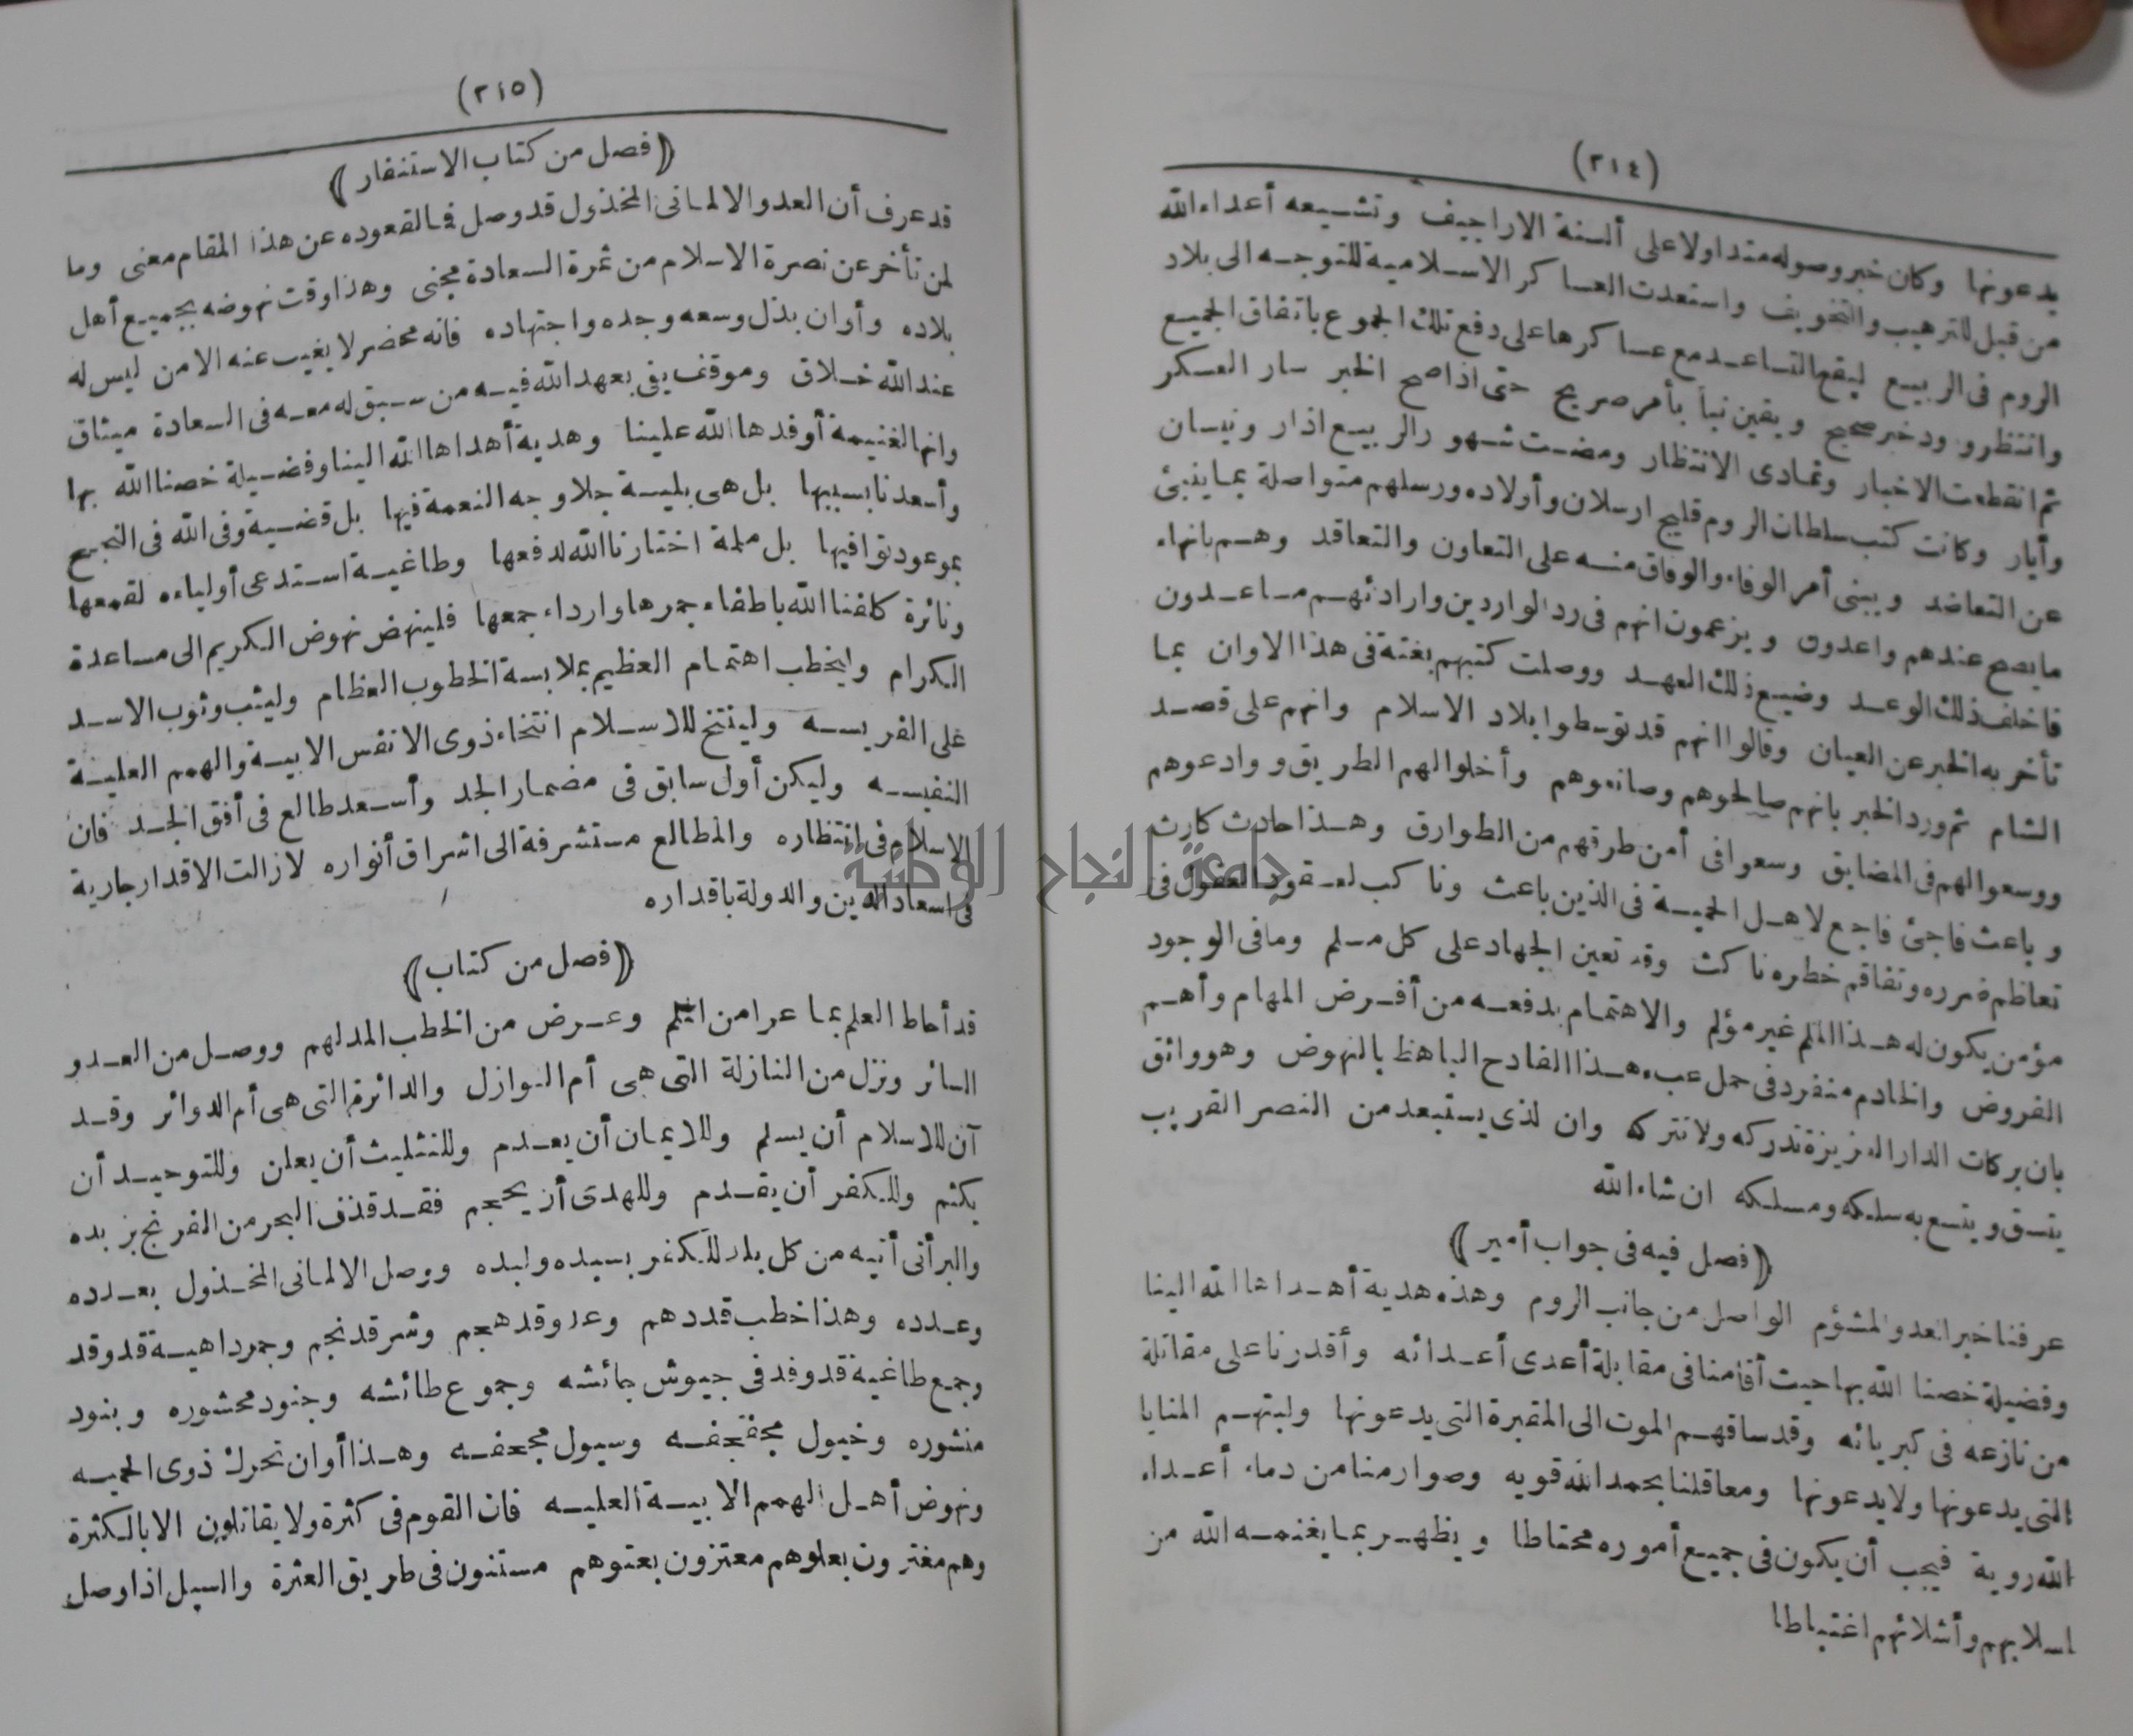 (٢١٤)
يدعونها وكان خبر وصوله متداولا على ألسنة الاراجيف وتشيعه أعداء الله
من قبل للترهيب والتخويف واستعدت العساكر الاسلامية للتوجه الى بلاد
الروم فى الربيع ليقع التساعد مع عساكرها على دفع تلك الجموع باتفاق الجميع
وانتظر ورود خبر صحيح ويقين نبا بأمر صريح حتى اذا صح الخبر سار العسكر
ثم انقطعت الاخبار وتمادى الانتظار ومضت شهور الربيع اذار ونيسان
وأيار وكانت كتب سلطان الروم قليج ارسلان وأولاده ورسلهم متواصلة بما ينبئ
عن التعاضد ويبنى أمر الوفاء والوفاق منه على التعاون والتعاقد وهم بانهاء
ما يصح عندهم واعدون ويزعمون انهم فى رد الواردين وارادئهم مساعدون
فاخلف ذلك الوعد وضيع ذلك العهد ووصلت كتبهم بغتة فى هذا الاوان بما
تأخر به الخبر عن العيان وقالوا انهم قد توسطوا بلاد الاسلام وانهم على قصد
الشام ثم ورد الخبر بانهم صالحوهم وصانعوهم وأخلوا لهم الطريق ووادعوهم
ووسعوا لهم فى المضايق وسعوا فى أمن طرقهم من الطوارق وهذا حادث كارث
وباعث فاجئ فاجع لاهل الحمية فى الذين باعث وناكب لعقود العقول فى
تعاظم ضرره وتفاقم خطره ناكث وقد تعين الجهاد على كل مسلم وما فى الوجود
مؤمن يكون له هذا الملم غير مؤلم والاهتمام بدفعه من أفرض المهام وأهم
الفروض والخادم منفرد فى حمل عبء هذا الفادح الباهظ بالنهوض وهو واثق
بان بركات الدار العزيزة تدركه ولا تتركه وان لذى يستبعد من النصر القريب
يتسق ويتسع به سلكه ومسلكه ان شاء الله
(فصل فيه فى جواب أمير)
عرفنا خبر العدو المشؤم الواصل من جانب الروم وهذه هدية أهداها الله الينا
وفضيلة خصنا الله بها حيث أقامنا فى مقابلة أعدى أعدائه وأقدرنا على مقاتلة
من نازعه فى كبريائه وقد ساقهم الموت الى المقبرة التى يدعونها ولبتهم المنايا
التى يدعونها ولا يدعونها ومعاقلنا بحمد الله قويه وصوارمنا من دماء أعداء
الله روية فيجب أن يكون فى جميع أموره محتاطا ويظهر بما يغنمه الله من
اسلابهم وأشلائهم اغتباطا
(٢١٥)
(فصل من كتاب الاستنفار)
قد عرف أن العدو الالمانى المخذول قد وصل فما لقعوده عن هذا المقام معنى وما
لمن تأخر عن نصرة الاسلام من ثمرة السعادة مجنى وهذا وقت نهوضه بجميع أهل
بلاده وأوان بذل وسعه وجده واجتهاده فانه محضر لا يغيب عنه الا من ليس له
عند الله خلاق وموقف يفى بعهد الله فيه من سبق له معه فى السعادة ميثاق
وانها لغنيمة أوفدها الله علينا وهدية أهداها الله الينا وفضيلة خصنا الله بها
وأسعدنا بسببها بل هى بلية جلا وجه النعمة فيها بل قضية وفى الله فى النجح
بموعود توافيها بل ملمة اختارنا الله لدفعها وطاغية استدعى أولياءه لقمعها
ونائرة كلفنا الله باطفاء جمرها وارداء جمعها فلينهض نهوض الكريم الى مساعدة
الكرام وليخطب اهتمام العظيم بملابسة الخطوب العظام وليثب وثوب الاسد
على الفريسه ولينتخ للاسلام انتخاء ذوى الانفس الابية والهمم العلية
النفيسه وليكن أول سابق فى مضمار الجد وأسعد طالع فى أفق الجد فان
الاسلام فى انتظاره والمطالع مستشرفة الى اشراق أنواره لا زالت الاقدار جارية
فى اسعاد الدين والدولة باقداره
(فصل من كتاب)
قد أحاط العلم بما عرا من الملم وعرض من الخطب المدلهم ووصل من العدو
السائر ونزل من النازلة التى هى أم النوازل والدائرة التى هى أم الدوائر وقد
آن للاسلام أن يسلم وللايمان أن يعدم وللتثليث أن يعلن وللتوحيد أن
يكتم وللكفر أن يقدم وللهدى أن يحجم فقد قذف البحر من الفرنج بزبده
والبر أتى أتيه من كل بلد للكفر بسيده ولبده ووصل الالمانى المخذول بعدده
وعدده وهذا خطب قد دهم وعدو قد هجم وشر قد نجم وجمر داهية قد وقد
وجمع طاغية قد وفد فى جيوش جائشه وجموع طائشه وجنود محشوره وبنود
منشوره وخيول مجفجفه وسيول مجحفه وهذا أوان تحرك ذوى الحميه
ونهوض أهل الهمم الابية العليه فان القوم فى كثرة ولا يقاتلون الا بالكثرة
وهم مغترون بعلوهم معتزون بعتوهم مستنون فى طريق العثرة والسيل اذا وصل
جامعة النجاح الوطنية